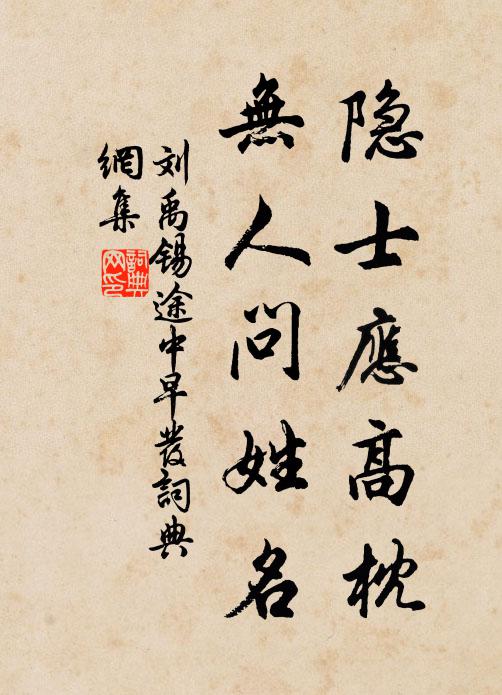 隐士應高枕
無人問姓名
刘禹锡途中早發詞典
網集
詞典
网印